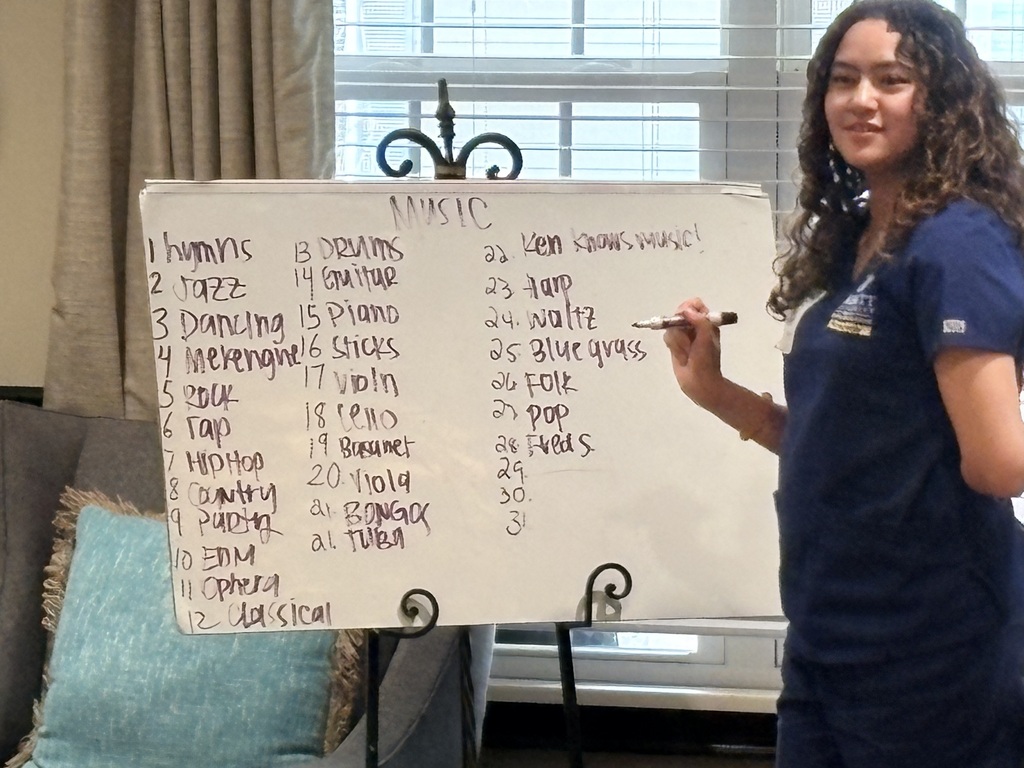 MUSIC
1 hymns
2 Jazz
3 Dancing
4 Merengne
5 ROCK
6 rap
7 HIPHOP
8 Country
9 Party
10 EDM
11 Ophera
12 Classical
13 DRUMS
14 Guitar
15 Piano
16 Sticks
17 violn
18 Cello
19
20. Viola
21. BONGOS
21. TUBA
22. Ken knows music!
23. Harp
24. Waltz
25. Blue grass
26 FOLK
27 POP
28. Fred S.
29.
30.
31